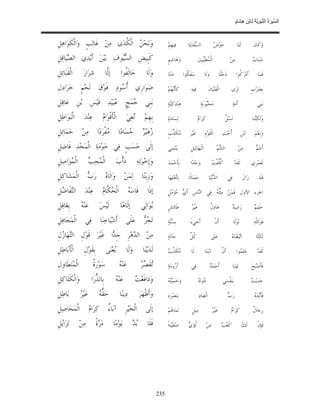 السّيرَة النّبَويّة لابْن هشَام
وَكَانَ لَنَا حَوْضُ السِّقَايَةِ فِيهِمْ وَنَحْنُ الْكُدَى مِنْ غَالِبٍ وَالْكَوَاهِلِ
شَبَابٌ مِنْ الْمُطَيَّبِينَ وَهَاشِمٍ كَبِيضِ السُّيُوفِ بَيْنَ أَيْدِي الصَّيَاقِلِ
فَمَا أَدْرَكُوا ذَحْلًا وَلَا سَفَكُوا دَمًا وَلَا حَالَفُوا إلَّا شِرَارَ الْقَبَائِلِ
بِضَرْبٍ تَرَى الْفِتْيَانَ فِيهِ كَأَنَّهُمْ ضَوَارِي أُسُودٍ فَوْقَ لَحْمٍ خَرَادِلِ
بَنِي أَمَةٍ مَحْبُوبَةٍ هِنْدِكِيَّةٍ بَنِي جُمَحٍ عُبَيْدِ قَيْسِ بْنِ عَاقِلِ
وَلَكِنَّنَا نَسْلٌ كِرَامٌ لِسَادَةٍ بِهِمْ نُعِيَ الْأَقْوَامُ عِنْدَ الْبَوَاطِلِ
وَنِعْمَ ابْنُ أُخْتِ الْقَوْمِ غَيْرَ مُكَذَّبٍ زُهَيْرٌ حُسَامًا مُفْرَدًا مِنْ حَمَائِلِ
أَشَمُّ مِنْ الشُّمِّ الْبَهَالِيلِ يَنْتَمِي إلَى حَسَبٍ فِي حَوْمَةِ الْمَجْدِ فَاضِلِ
لَعَمْرِي لَقَدْ كُلِّفْتُ وَجْدًا بِأَحْمَدَ وَإِخْوَتِهِ دَأْبَ الْمُحِبِّ الْمُوَاصِلِ
فَلَا زَالَ فِي الدُّنْيَا جَمَالًا لِأَهْلِهَا وَزَيْنًا لِمَنْ وَالَاهُ رَبُّ الْمَشَاكِلِ
الجزء الأول فَمَنْ مِثْلُهُ فِي النَّاسِ أَيُّ مُؤَمَّلٍ إذَا قَاسَهُ الْحُكَّامُ عِنْدَ التَّفَاضُلِ
حَلِيمٌ رَشِيدٌ عَادِلٌ غَيْرُ طَائِشٍ يُوَالِي إلَاهًا لَيْسَ عَنْهُ بِغَافِلِ
فَوَاَللَّهِ لَوْلَا أَنْ أَجِيءَ بِسُنَّةٍ تُجَرُّ عَلَى أَشْيَاخِنَا فِي الْمَحَافِلِ
لَكِنَّا اتَّبَعْنَاهُ عَلَى كُلِّ حَالَةٍ مِنْ الدَّهْرِ جِدًّا غَيْرَ قَوْلِ التَّهَازُلِ
لَقَدْ عَلِمُوا أَنَّ ابْنَنَا لَا مُكَذَّبٌ لَدَيْنَا وَلَا يُعْنَى بِقَوْلِ الْأَبَاطِلِ
فَأَصْبَحَ فِينَا أَحْمَدُ فِي أَرُومَةٍ تُقَصِّرُ عَنْهُ سَوْرَةُ الْمُتَطَاوِلِ
حَدِبْتُ بِنَفْسِي دُونَهُ وَحَمَيْتُهُ وَدَافَعْتُ عَنْهُ بِالذُّرَا وَالْكَلَاكِلِ
فَأَيَّدَهُ رَبُّ الْعِبَادِ بِنَصْرِهِ وَأَظْهَرَ دِينًا حَقُّهُ غَيْرُ بَاطِلِ
رِجَالٌ كِرَامٌ غَيْرُ مِيلٍ نَمَاهُمْ إلَى الْخَيْرِ آبَاءٌ كِرَامُ الْمَحَاصِلِ
فَإِنْ تَكُ كَعْبٌ مِنْ لُؤَيٍّ صُقَيْبَةً فَلَا بُدَّ يَوْمًا مَرَّةً مِنْ تَزَايُلِ
235